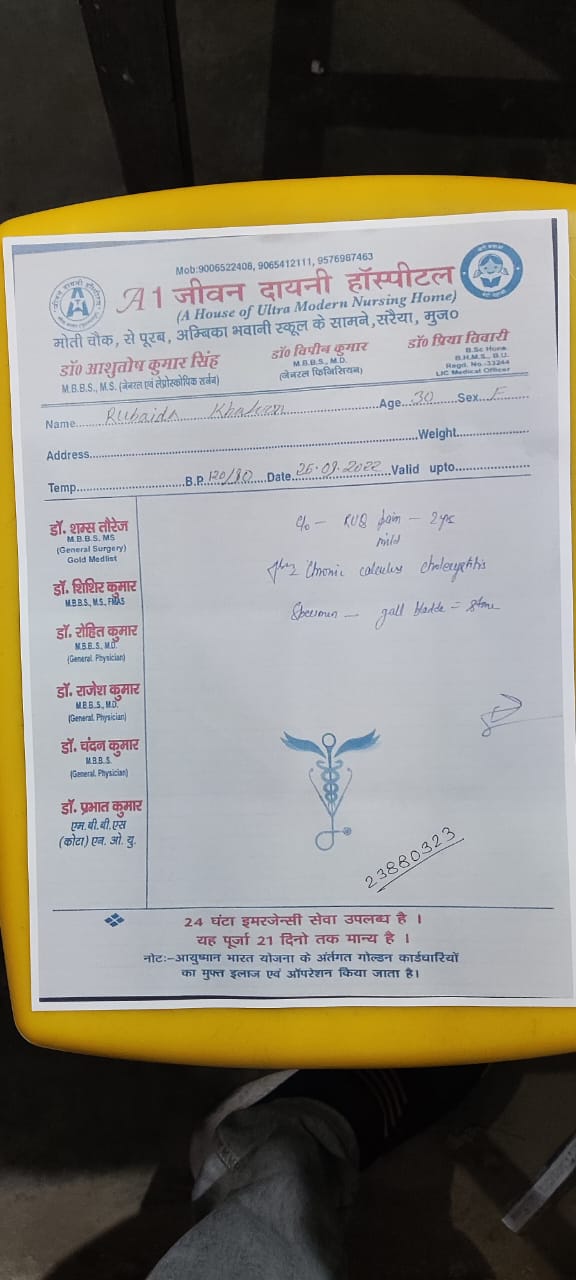 Mob:9006522408, 9065412111, 9576987463
A 1 जीवन दायनी हॉस्पीटल
(A House of Ultra Modern Nursing Home)
मोती चौक, से पूरब, अम्बिका भवानी स्कूल के सामने, सरैया, मुज०
डॉ० आशुतोष कुमार सिंह
M.B.B.S., M.S. (जेनरल एवं लेप्रोस्कोपिक सर्जन)
डॉ० विपीन कुमार
M.B.B.S., M.D.
(जेनरल फिजिसियन)
डॉ० प्रिया तिवारी
B.Sc Hons.
B.H.M.S., B.U.
Regd. No.-33244
LIC Medical Officer
Name Rubaida Khatoon Age 30 Sex F
Address Weight
Temp B.P. 120/80 Date 26.09.2022 Valid upto
डॉ. शम्स तौरेज
M.B.B.S. MS
(General Surgery)
Gold Medlist
डॉ. शिशिर कुमार
M.B.B.S., M.S., FMAS
डॉ. रोहित कुमार
M.B.B..S., M.D.
(General. Physician)
डॉ. राजेश कुमार
M.B.B..S., M.D.
(General. Physician)
डॉ. चंदन कुमार
M.B.B..S.
(General. Physician)
डॉ. प्रभात कुमार
एम.बी.बी.एस
(कोटा) एन. ओ. यु.
c/o – RUQ pain – 2 yrs
mild
Chronic calculus
Specimen – gall bladder = stone
23880323
24 घंटा इमरजेन्सी सेवा उपलब्ध है ।
यह पूर्जा 21 दिनो तक मान्य है ।
नोट:-आयुष्मान भारत योजना के अंर्तगत गोल्डन कार्डधारियों
का मुफ्त इलाज एवं ऑपरेशन किया जाता है।